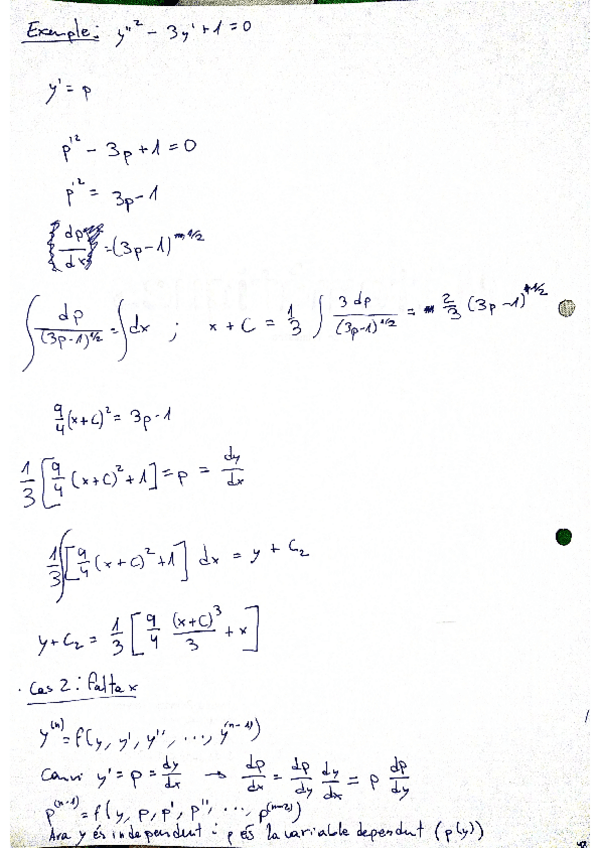 Exemple: y''² - 3y' + 1 = 0
y' = p
p'² - 3p + 1 = 0
p'² = 3p - 1
dp/dx = (3p-1)^1/2
∫ dp/(3p-1)^1/2 = ∫ dx ; x + C = 1/3 ∫ 3 dp/(3p-1)^1/2 = 2/3 (3p-1)^1/2
9/4 (x+C)² = 3p-1
1/3 [9/4 (x+C)² + 1] = p = dy/dx
1/3 ∫ [9/4 (x+C)² + 1] dx = y + C₂
y + C₂ = 1/3 [9/4 (x+C)³/3 + x]
· Cas 2: falta x
y^(n) = f(y, y', y'', ..., y^(n-1))
Canvi y' = p = dy/dx → dp/dx = dp/dy dy/dx = p dp/dy
p^(n-1) = f(y, p, p', p'', ..., p^(n-2))
Ara y és independent i p és la variable dependent (p(y))